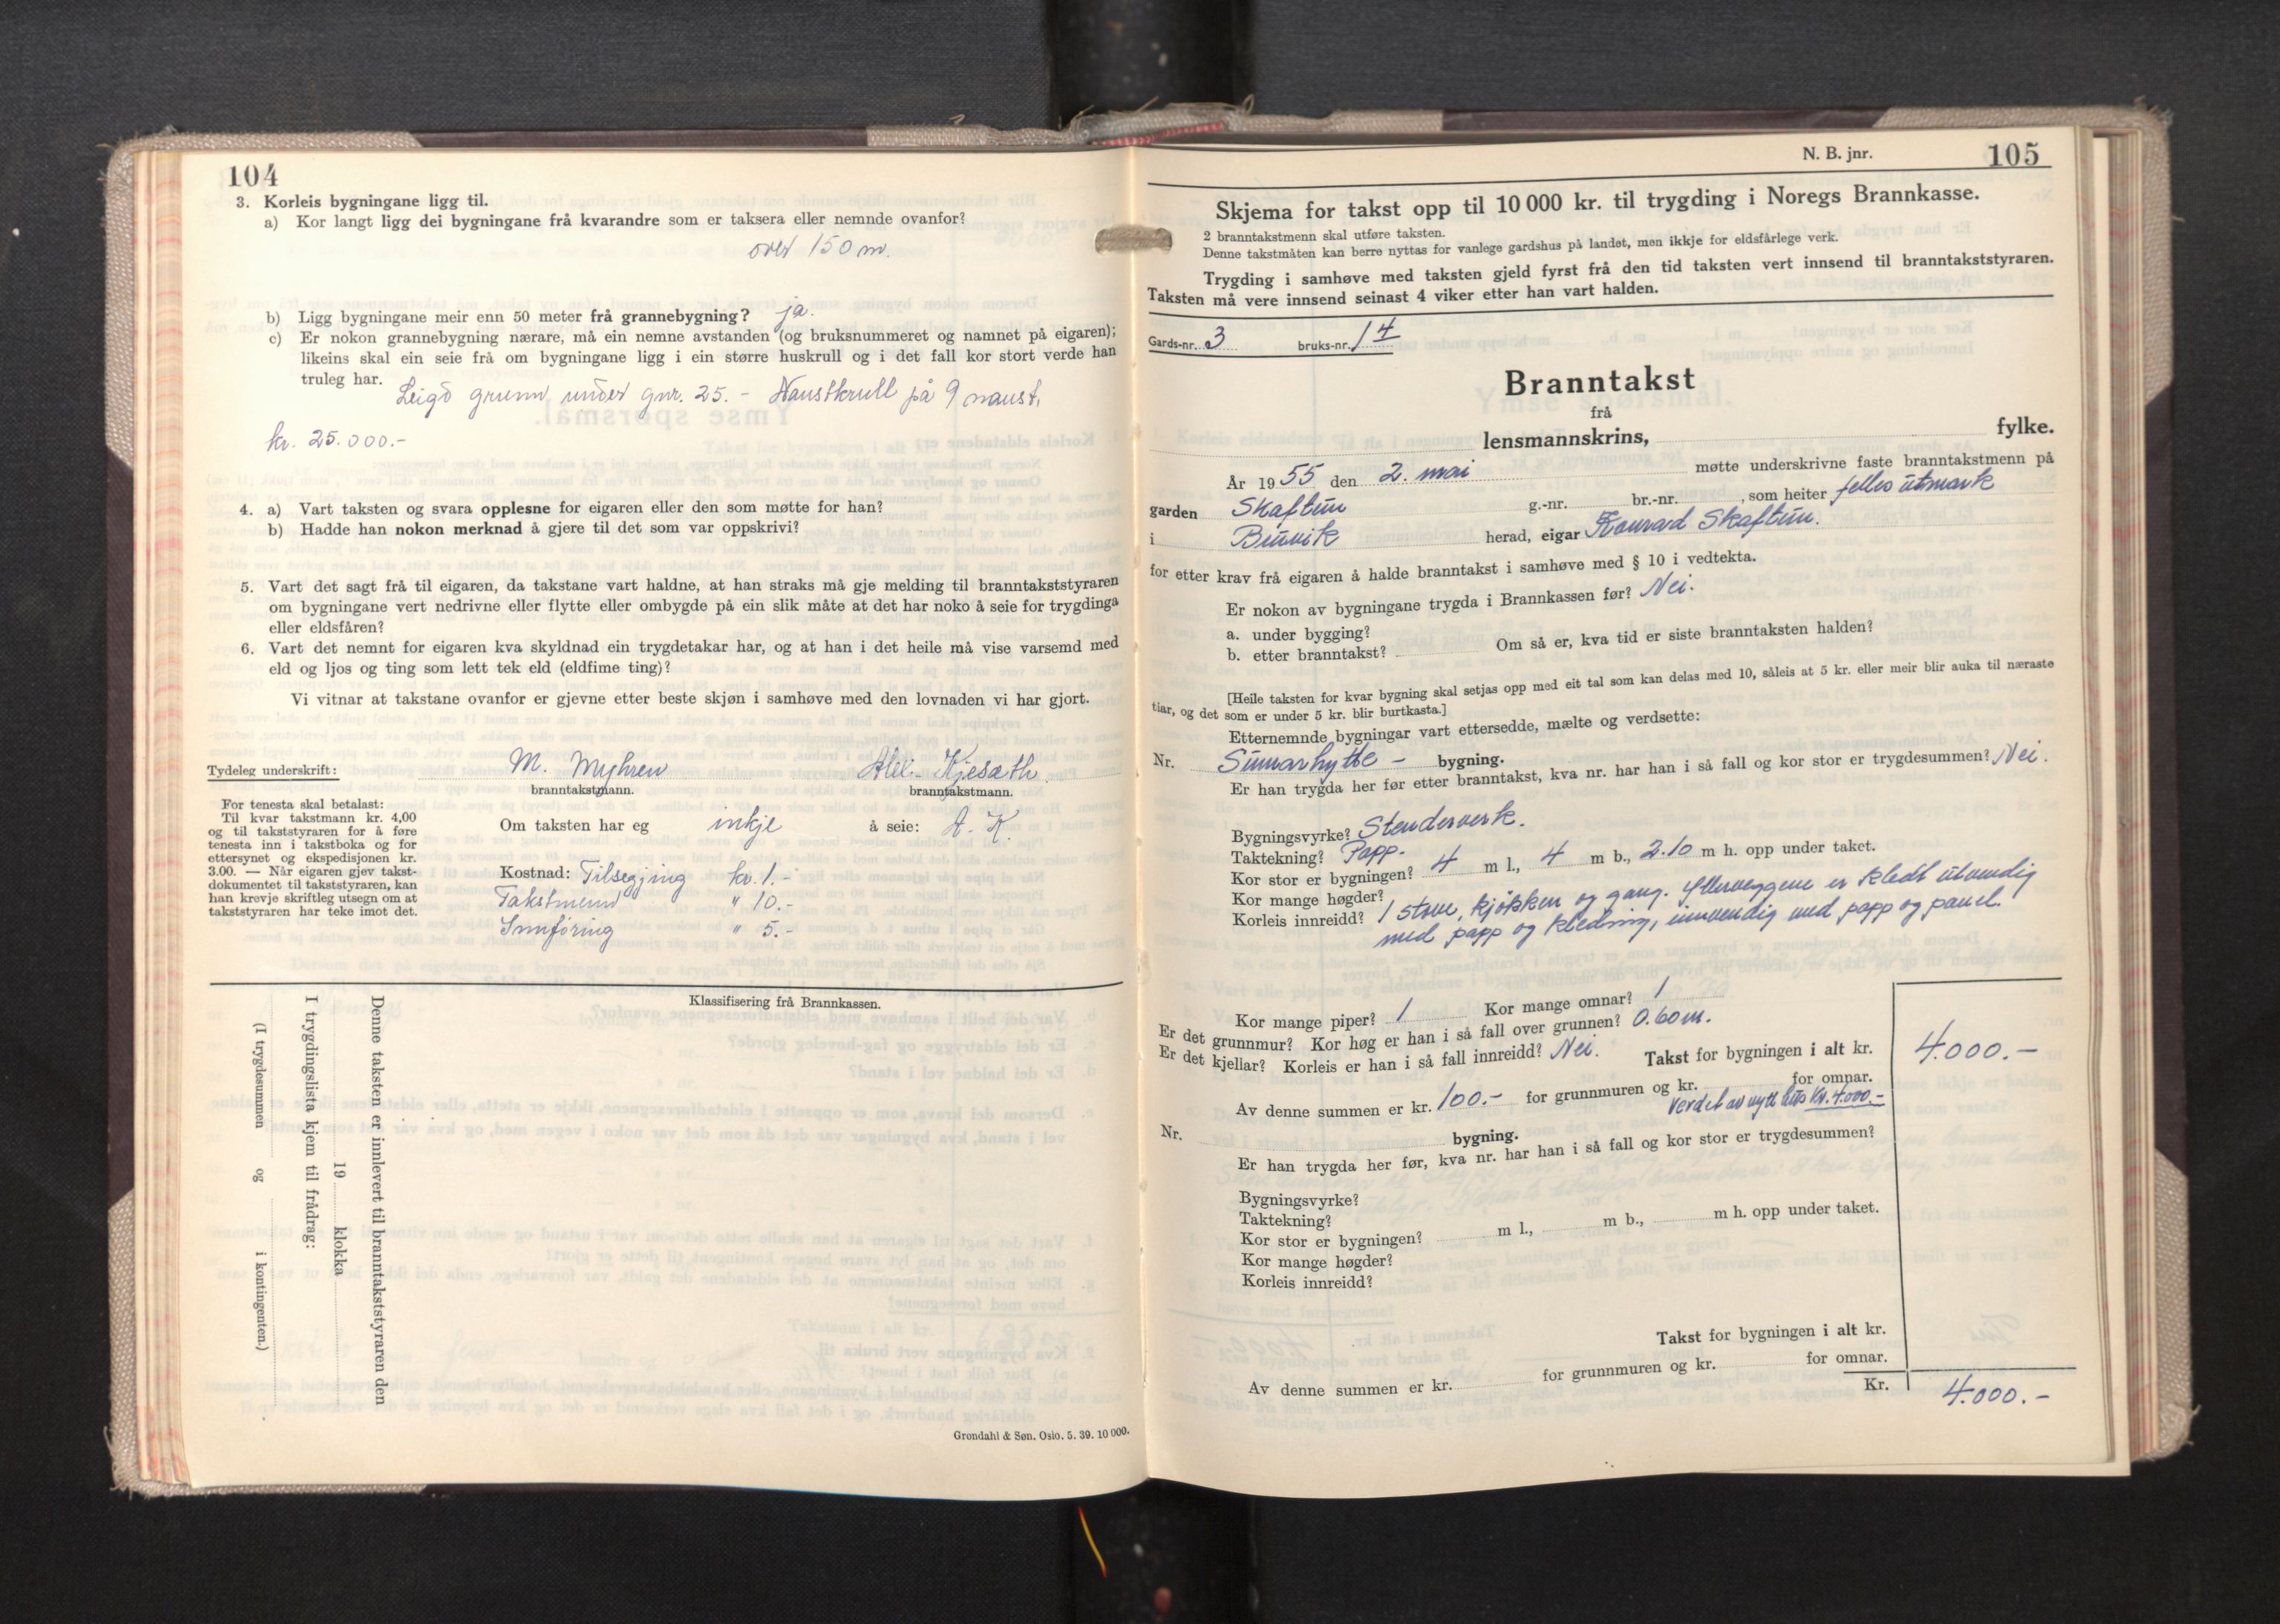 104
3. Korleis bygningane ligg til.
a) Kor langt ligg dei bygningane frå kvarandre som er taksera eller nemnde ovanfor?
over 150 m.
b) Ligg bygningane meir enn 50 meter frå grannebygning? ja.
c) Er nokon grannebygning nærare, må ein nemne avstanden (og bruksnummeret og namnet på eigaren);
likeins skal ein seie frå om bygningane ligg i ein større huskrull og i det fall kor stort verde han
truleg har. Leigd grunn under gnr. 25. - Naustkrull på 9 naust,
kr. 25.000.-
4. a) Vart taksten og svara opplesne for eigaren eller den som møtte for han?
b) Hadde han nokon merknad å gjere til det som var oppskrivi?
5. Vart det sagt frå til eigaren, da takstane vart haldne, at han straks må gje melding til branntakststyraren
om bygningane vert nedrivne eller flytte eller ombygde på ein slik måte at det har noko å seie for trygdinga
eller eldsfåren?
6. Vart det nemnt for eigaren kva skyldnad ein trygdetakar har, og at han i det heile må vise varsemd med
eld og ljos og ting som lett tek eld (eldfime ting)?
Vi vitnar at takstane ovanfor er gjevne etter beste skjøn i samhøve med den lovnaden vi har gjort.
Tydeleg underskrift: M. Myhren Kjesæth.
branntakstmann. branntakstmann.
For tenesta skal betalast:
Til kvar takstmann kr. 4,00
og til takststyraren for å føre
tenesta inn i takstboka og for
ettersynet og ekspedisjonen kr.
3.00. — Når eigaren gjev takst-
dokumentet til takststyraren, kan
han krevje skriftleg utsegn om at
takststyraren har teke imot det.
Om taksten har eg inkje å seie: A. K.
Kostnad: Tilsegjing kr. 1.-
Takstmenn " 10.-
Innföring " 5.-
Klassifisering frå Brannkassen.
Denne taksten er innlevert til branntakststyraren den
19 klokka
I trygdingslista kjem til frådrag:
(I trygdesummen og i kontingenten.)
Grøndahl & Søn, Oslo. 5. 39. 10 000.
N. B. jnr. 105
Skjema for takst opp til 10 000 kr. til trygding i Noregs Brannkasse.
2 branntakstmenn skal utføre taksten.
Denne takstmåten kan berre nyttas for vanlege gardshus på landet, men ikkje for eldsfårlege verk.
Trygding i samhøve med taksten gjeld fyrst frå den tid taksten vert innsend til branntakststyraren.
Taksten må vere innsend seinast 4 viker etter han vart halden.
Gards-nr. 3 bruks-nr. 14
Branntakst
frå
lensmannskrins, fylke.
År 1955 den 2. mai møtte underskrivne faste branntakstmenn på
garden Skaftun g.-nr. br.-nr. , som heiter felles utmark
i Bruvik herad, eigar Konrad Skaftun.
for etter krav frå eigaren å halde branntakst i samhøve med § 10 i vedtekta.
Er nokon av bygningane trygda i Brannkassen før? Nei.
a. under bygging?
b. etter branntakst? Om så er, kva tid er siste branntaksten halden?
[Heile taksten for kvar bygning skal setjas opp med eit tal som kan delas med 10, såleis at 5 kr. eller meir blir auka til næraste
tiar, og det som er under 5 kr. blir burtkasta.]
Etternemnde bygningar vart ettersedde, mælte og verdsette:
Nr. Sumarhytte - bygning.
Er han trygda her før etter branntakst, kva nr. har han i så fall og kor stor er trygdesummen? Nei.
Bygningsvyrke? Stenderverk.
Taktekning? Papp.
Kor stor er bygningen? 4 m l., 4 m b., 2.10 m h. opp under taket.
Kor mange høgder?
Korleis innreidd? 1 stove, kjökken og gang. Ytterveggene er kledt utvendig
med papp og kledning, innvendig med papp og panel.
Kor mange piper? 1 Kor mange omnar? 1
Er det grunnmur? Kor høg er han i så fall over grunnen? 0.60 m.
Er det kjellar? Korleis er han i så fall innreidd? Nei. Takst for bygningen i alt kr. 4.000.-
Av denne summen er kr. 100.- for grunnmuren og kr. for omnar.
Verdet av nytt hus Kr. 4.000.-
Nr. bygning.
Er han trygda her før, kva nr. har han i så fall og kor stor er trygdesummen?
Bygningsvyrke?
Taktekning?
Kor stor er bygningen? m l., m b., m h. opp under taket.
Kor mange høgder?
Korleis innreidd?
Takst for bygningen i alt kr.
Av denne summen er kr. for grunnmuren og kr. for omnar.
Kr. 4.000.-